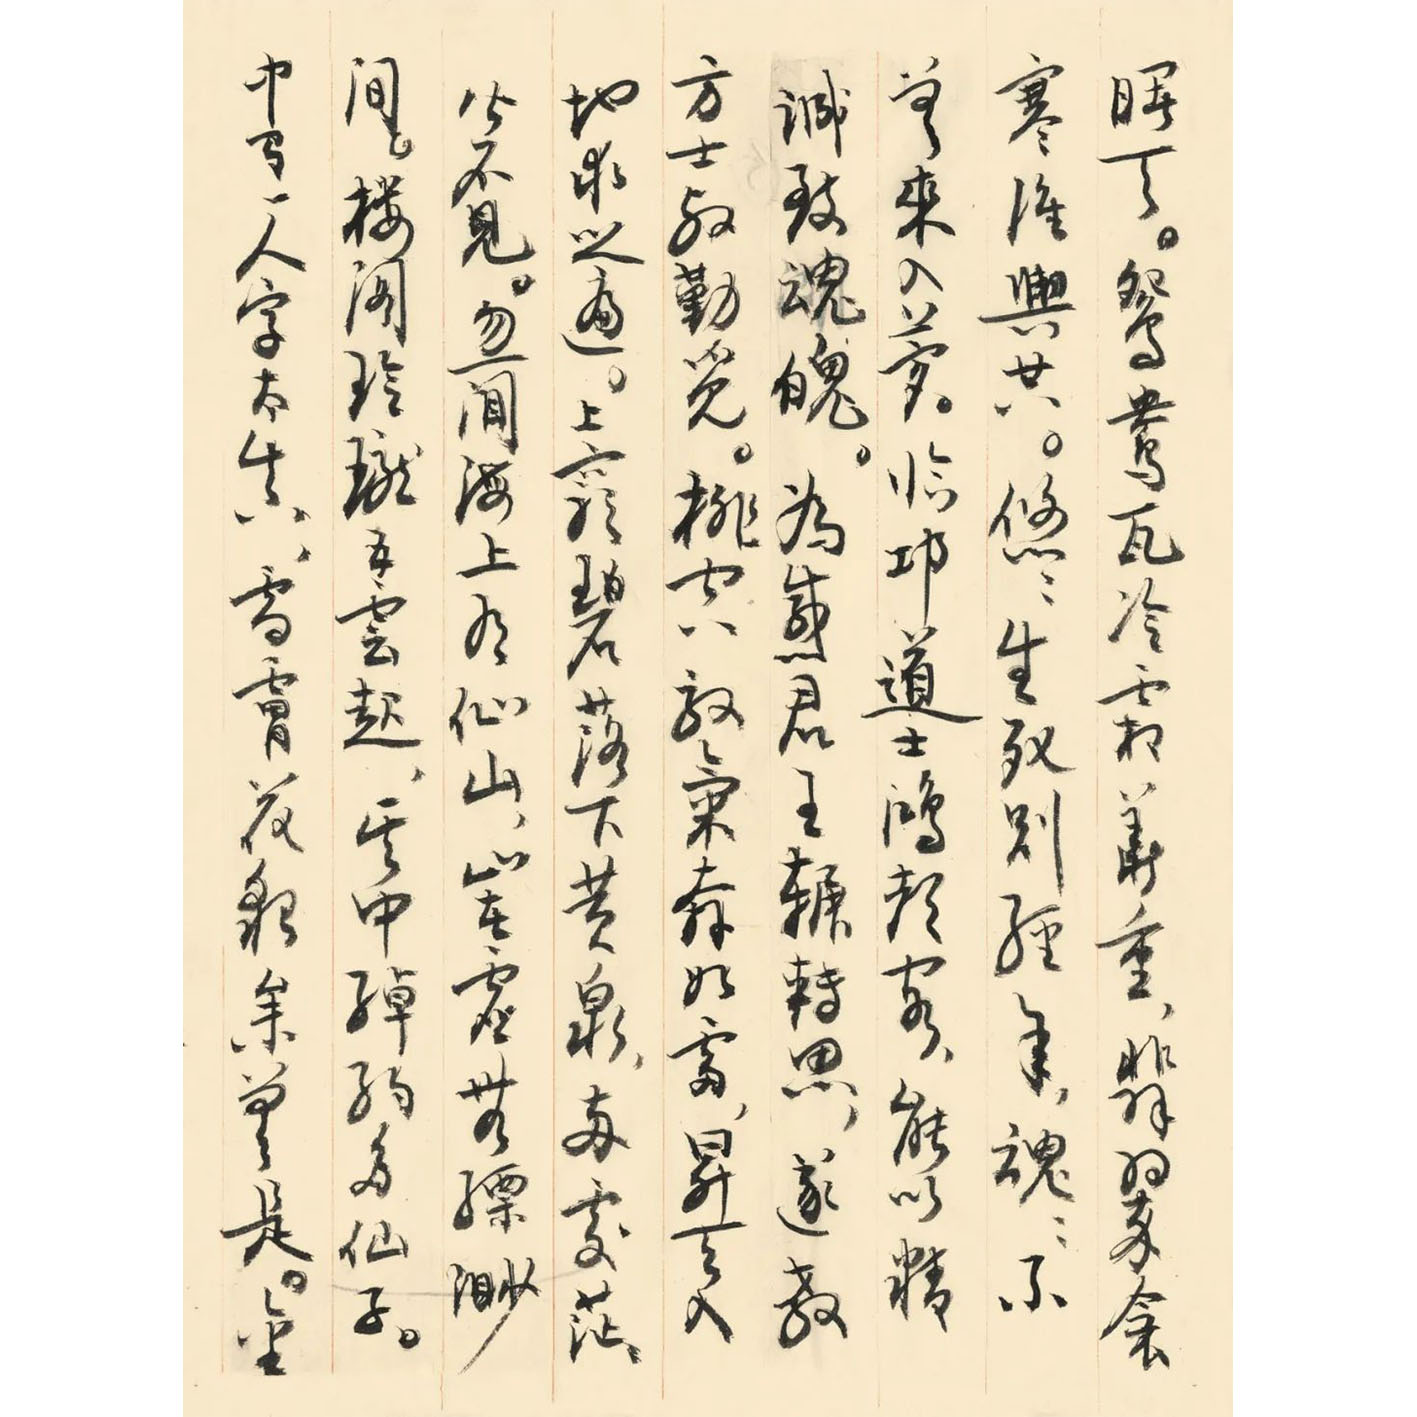 曙天。鴛鴦瓦冷霜華重、翡翠衾
寒誰與共。悠〻生死別經年、魂〻不
曾來入夢。臨邛道士鴻都客、能以精
誠致魂魄。為感君王輾轉思、遂教
方士殷勤覓。排空馭氣奔如電、昇天入
地求之遍。上窮碧落下黃泉、兩處茫〻
皆不見。忽聞海上有仙山、山在虛無縹緲
間。樓閣玲瓏五雲起、其中綽約多仙子。
中有一人字太真、雪膚花貌參差是。金